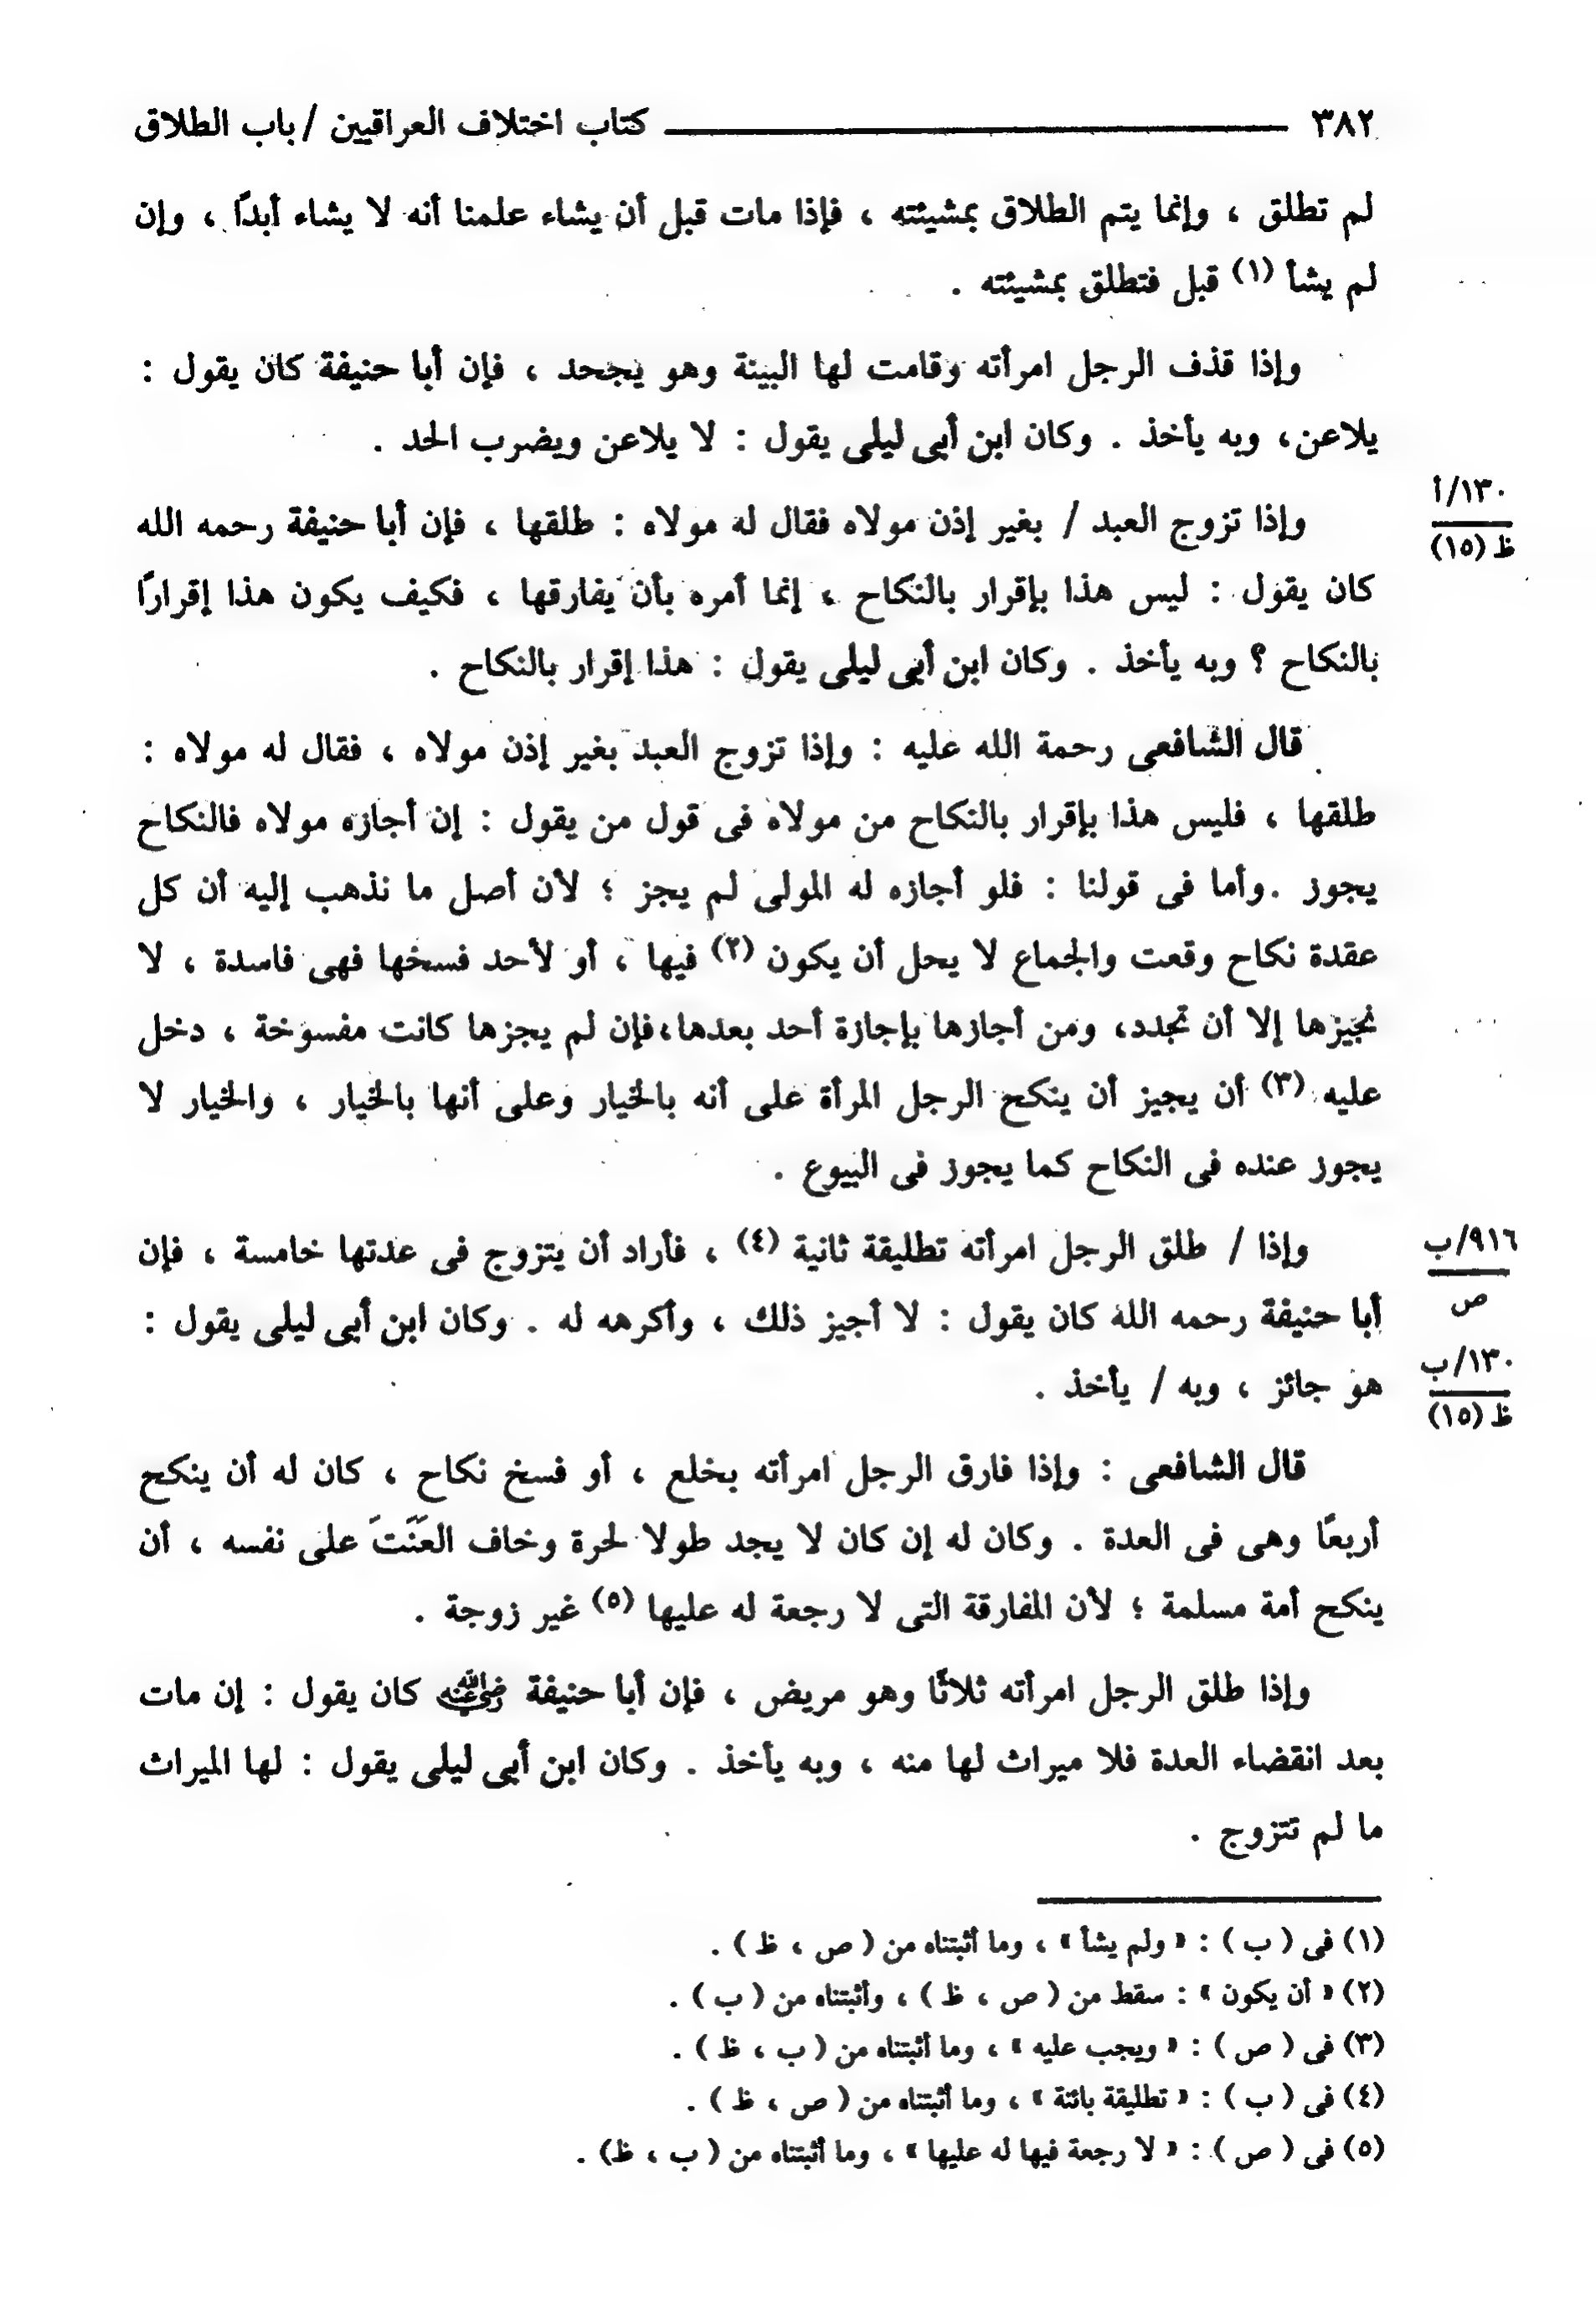 ٣٨٢ ــــــــــــــــــــ كتاب اختلاف العراقيين / باب الطلاق
لم تطلق ، وإنما يتم الطلاق بمشيئته ، فإذا مات قبل أن يشاء علمنا أنه لا يشاء أبدًا ، وإن
لم يشأ (١) قبل فتطلق بمشيئته .
وإذا قذف الرجل امرأته وقامت لها البينة وهو يجحد ، فإن أبا حنيفة كان يقول :
يلاعن، وبه يأخذ . وكان ابن أبى ليلى يقول : لا يلاعن ويضرب الحد .
١٣٠/أ
ظ (١٥)
وإذا تزوج العبد / بغير إذن مولاه فقال له مولاه : طلقها ، فإن أبا حنيفة رحمه الله
كان يقول : ليس هذا بإقرار بالنكاح ، إنما أمره بأن يفارقها ، فكيف يكون هذا إقرارًا
بالنكاح ؟ وبه يأخذ . وكان ابن أبى ليلى يقول : هذا إقرار بالنكاح .
قال الشافعى رحمة الله عليه : وإذا تزوج العبد بغير إذن مولاه ، فقال له مولاه :
طلقها ، فليس هذا بإقرار بالنكاح من مولاه فى قول من يقول : إن أجازه مولاه فالنكاح
يجوز .وأما فى قولنا : فلو أجازه له المولى لم يجز ؛ لأن أصل ما نذهب إليه أن كل
عقدة نكاح وقعت والجماع لا يحل أن يكون (٢) فيها ، أو لأحد فسخها فهى فاسدة ، لا
نجيزها إلا أن تجدد، ومن أجازها بإجازة أحد بعدها،فإن لم يجزها كانت مفسوخة ، دخل
عليه (٣) أن يجيز أن ينكح الرجل المرأة على أنه بالخيار وعلى أنها بالخيار ، والخيار لا
يجوز عنده فى النكاح كما يجوز فى البيوع .
٩١٦/ب
ص
وإذا / طلق الرجل امرأته تطليقة ثانية (٤) ، فأراد أن يتزوج فى عدتها خامسة ، فإن
أبا حنيفة رحمه الله كان يقول : لا أجيز ذلك ، وأكرهه له . وكان ابن أبى ليلى يقول :
١٣٠/ب
ظ (١٥)
هو جائز ، وبه / يأخذ .
قال الشافعى : وإذا فارق الرجل امرأته بخلع ، أو فسخ نكاح ، كان له أن ينكح
أربعًا وهى فى العدة . وكان له إن كان لا يجد طولا لحرة وخاف العَنَتَ على نفسه ، أن
ينكح أمة مسلمة ؛ لأن المفارقة التى لا رجعة له عليها (٥) غير زوجة .
وإذا طلق الرجل امرأته ثلاثًا وهو مريض ، فإن أبا حنيفة رضي الله عنه كان يقول : إن مات
بعد انقضاء العدة فلا ميراث لها منه ، وبه يأخذ . وكان ابن أبى ليلى يقول : لها الميراث
ما لم تتزوج .
(١) فى ( ب ) : « ولم يشأ » ، وما أثبتناه من ( ص ، ظ ) .
(٢) « أن يكون » : سقط من ( ص ، ظ ) ، وأثبتناه من ( ب ) .
(٣) فى ( ص ) : « ويجب عليه » ، وما أثبتناه من ( ب ، ظ ) .
(٤) فى ( ب ) : « تطليقة بائنة » ، وما أثبتناه من ( ص ، ظ ) .
(٥) فى ( ص ) : « لا رجعة فيها له عليها » ، وما أثبتناه من ( ب ، ظ) .